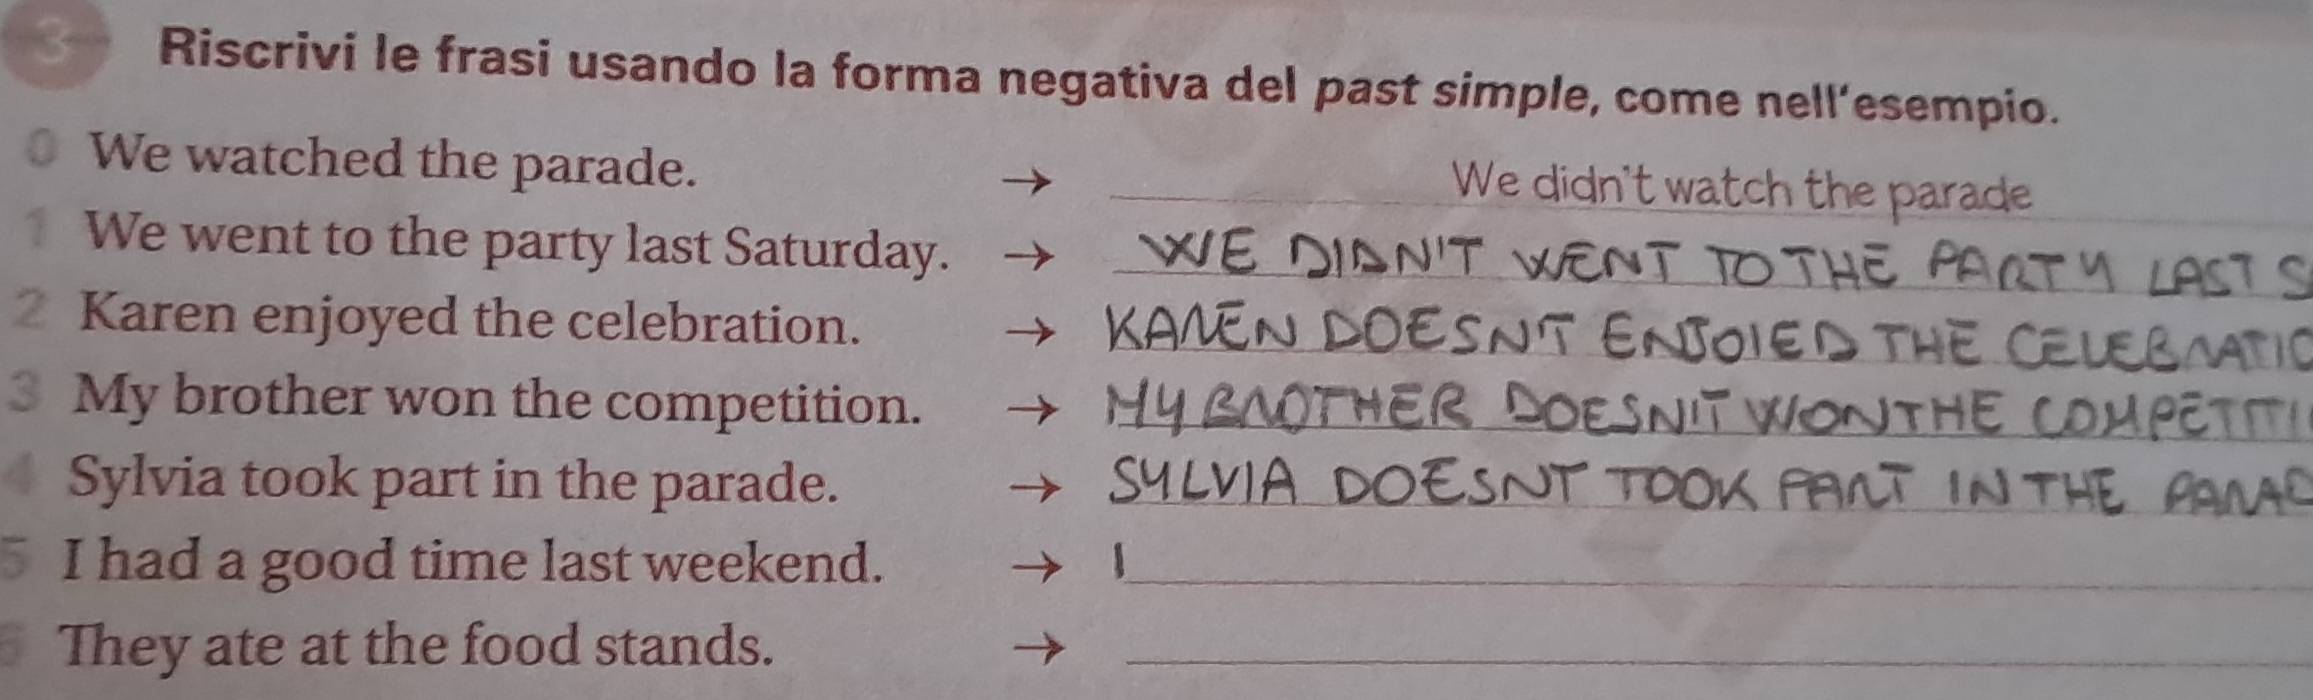 3 Riscrivi le frasi usando la forma negativa del past simple, come nell'esempio.
0 We watched the parade. → We didn't watch the parade
1 We went to the party last Saturday. → WE DIDN'T WENT TO THE PARTY LAST S
2 Karen enjoyed the celebration. → KAREN DOESN'T ENJOIED THE CELEBRATIO
3 My brother won the competition. → MY BROTHER DOESN'T WON THE COMPETITI
4 Sylvia took part in the parade. → SYLVIA DOESNT TOOK PART IN THE PARAD
5 I had a good time last weekend. → I
6 They ate at the food stands. →